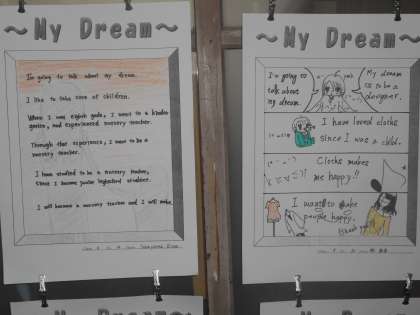 ~My Dream~
I'm going to talk about my dream.
I like to take care of children.
When I was eighth grade, I went to a kinder
garten, and experienced nursery teacher.
Through that experience, I want to be a
nursery teacher.
I have studied to be a nursery teacher,
since I became junior highschool student.
I will become a nursery teacher and I will make
~My Dream~
I'm going to
talk about
my dream.
My dream
is to be a
designer.
I have loved cloths
since I was a child.
Cloths makes
me happy!!
I want to make
people happy.
Thank you
My Dream
My Dream